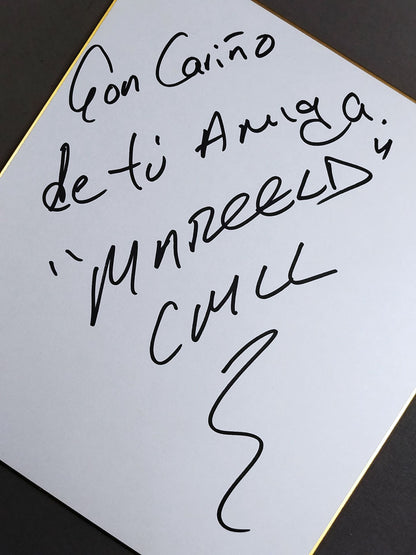 Con Cariño
de tú Amiga.
"MARCELO"
CMLL